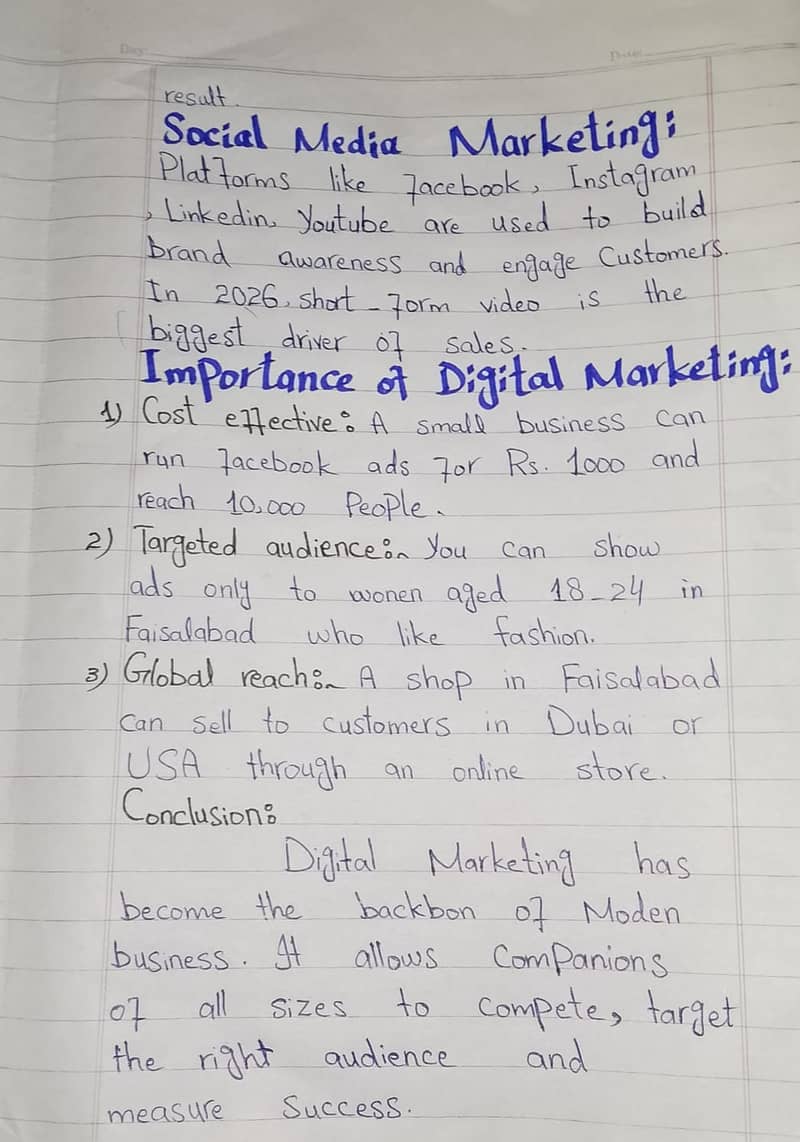 Day
Date
result.
Social Media Marketing:
Platforms like facebook, Instagram
, Linkedin, Youtube are used to build
brand awareness and engage Customers.
In 2026, short-form video is the
biggest driver of sales.
Importance of Digital Marketing:
1) Cost effective: A small business can
run facebook ads for Rs. 1000 and
reach 10,000 People.
2) Targeted audience:~ You can show
ads only to wonen aged 18-24 in
Faisalabad who like fashion.
3) Global reach:~ A shop in Faisalabad
can sell to customers in Dubai or
USA through an online store.
Conclusion:
Digital Marketing has
become the backbon of Moden
business. It allows Companions
of all sizes to compete, target
the right audience and
measure Success.